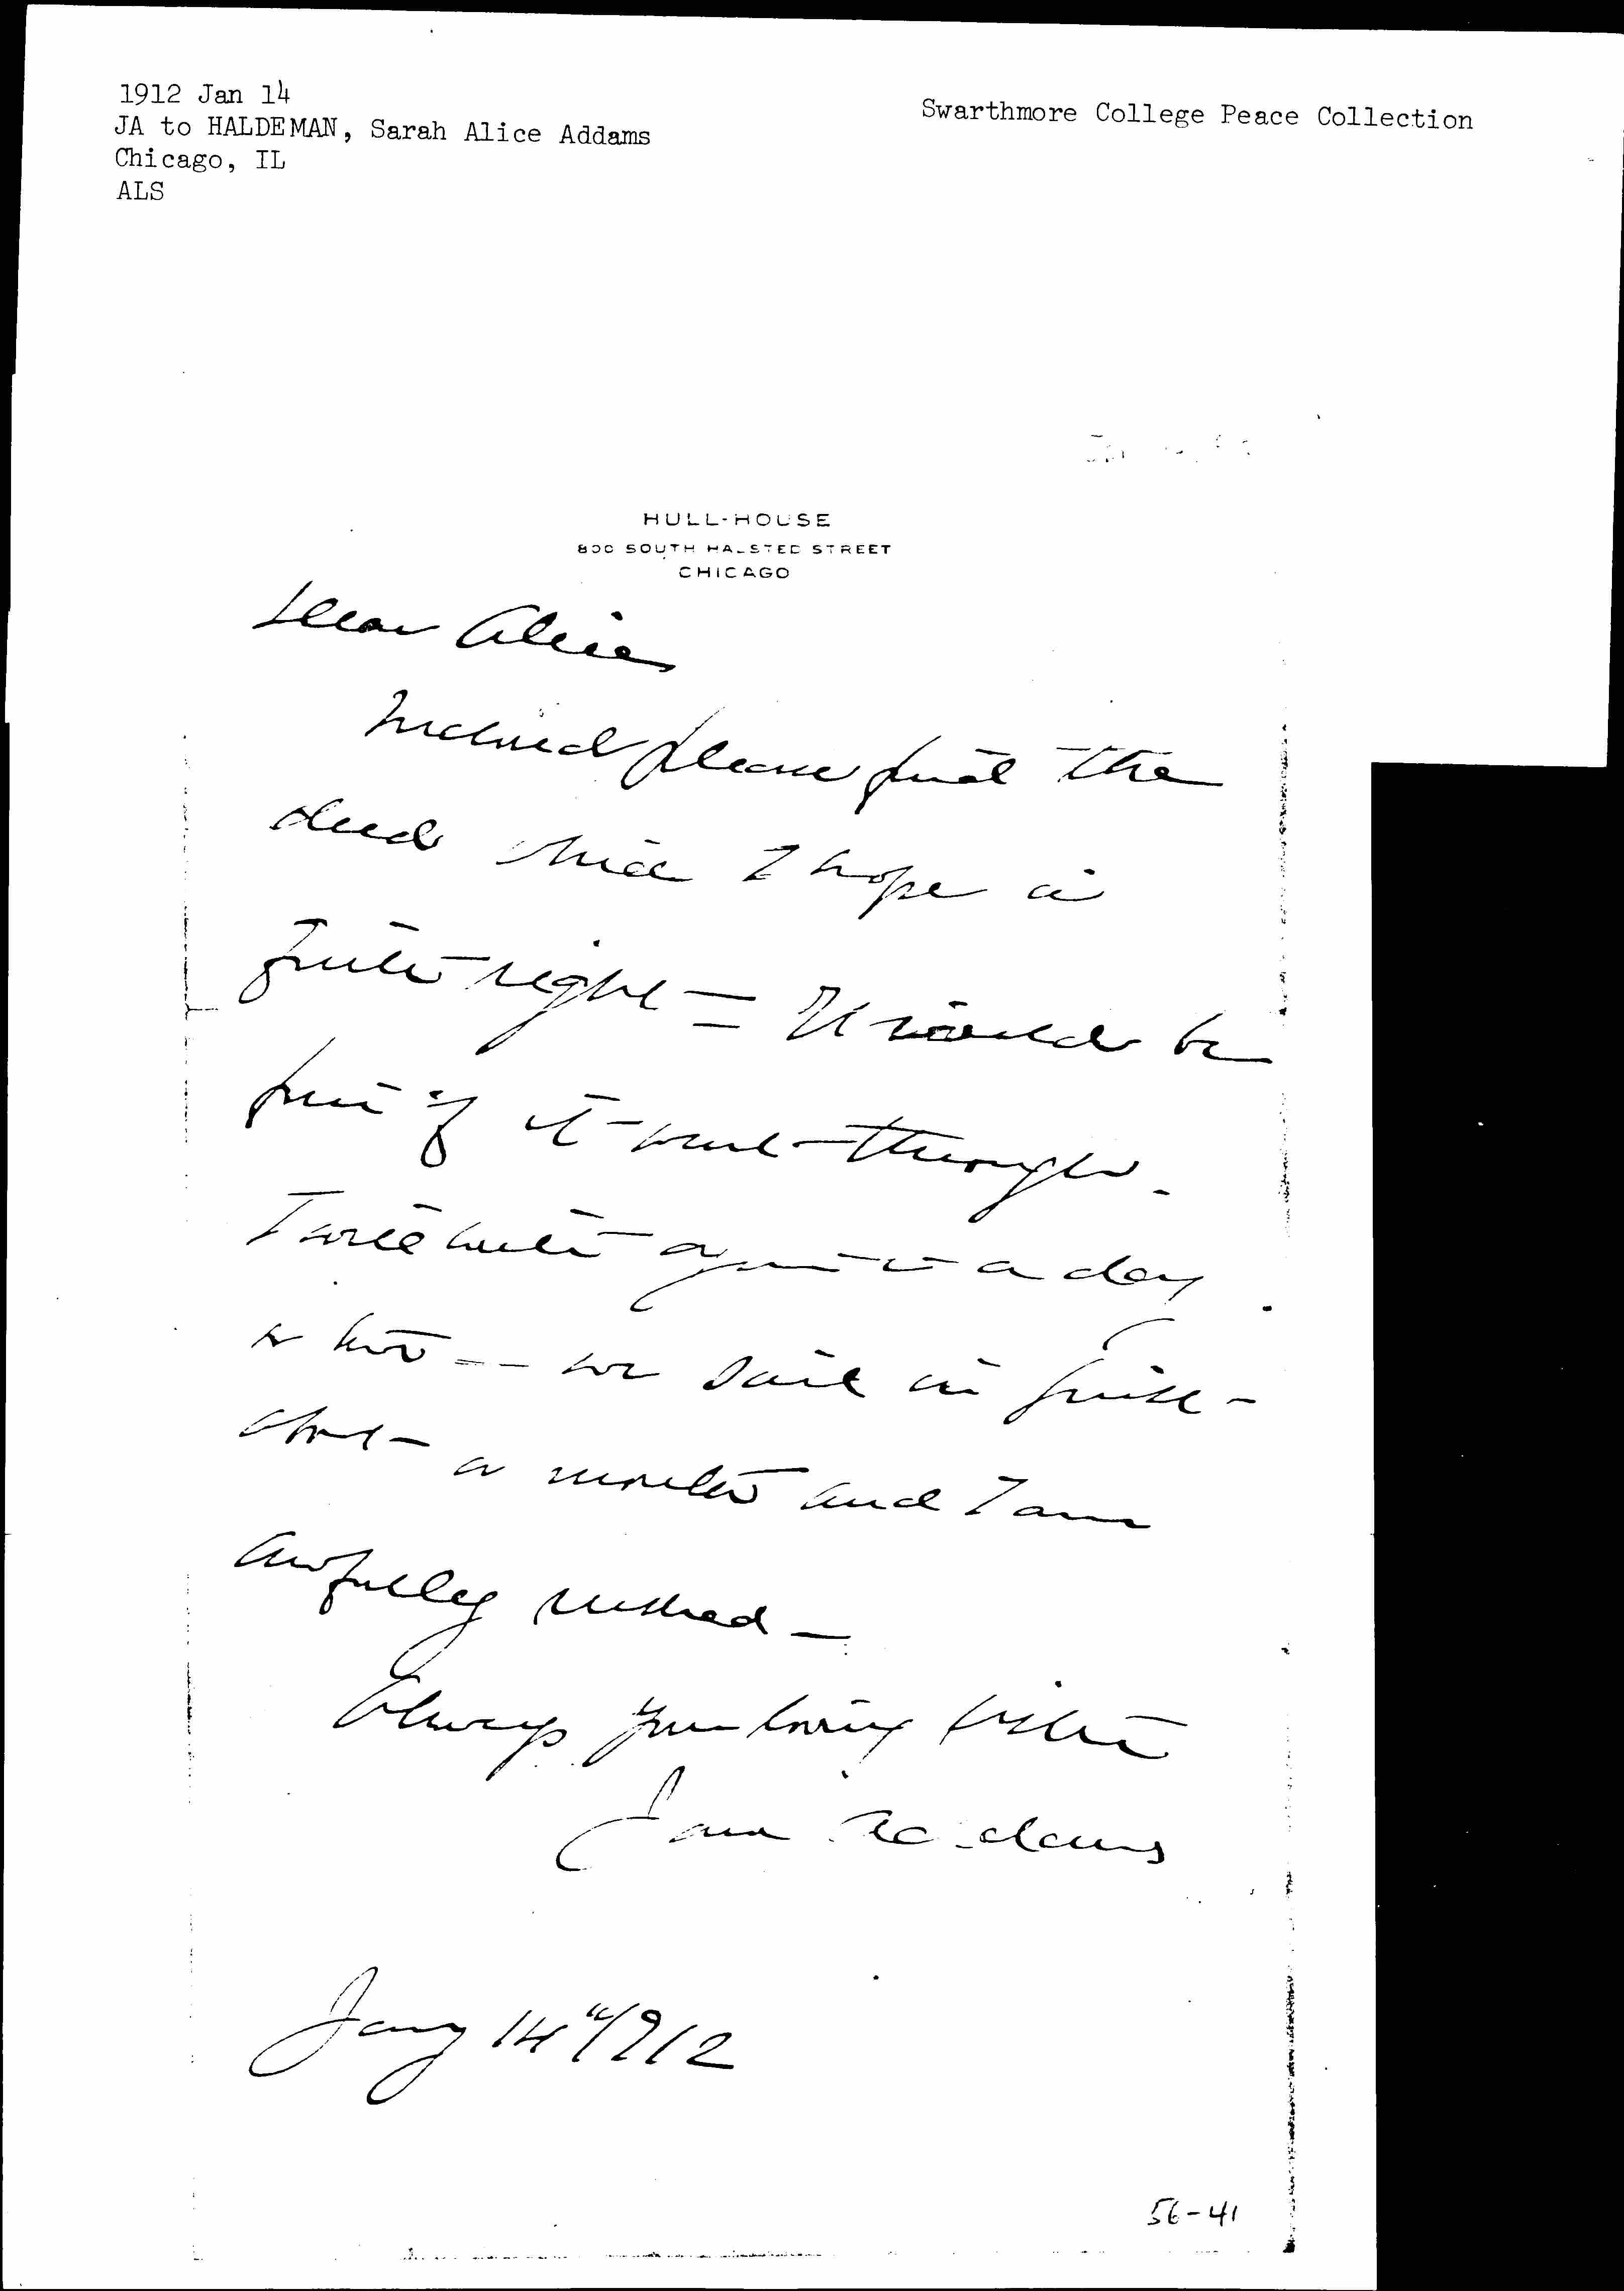 1912 Jan 14
JA to HALDEMAN, Sarah Alice Addams
Chicago, IL
ALS
Swarthmore College Peace Collection
HULL-HOUSE
800 SOUTH HALSTED STREET
CHICAGO
Dear Alice
Inclosed please find the
deed which I hope is
quite right = It would be
fun if it went through.
I will write again in a day
or two -- we sail in just
about a month and I am
awfully rushed -
Always your loving sister
Jane Addams
Jany 14" 1912
56-41